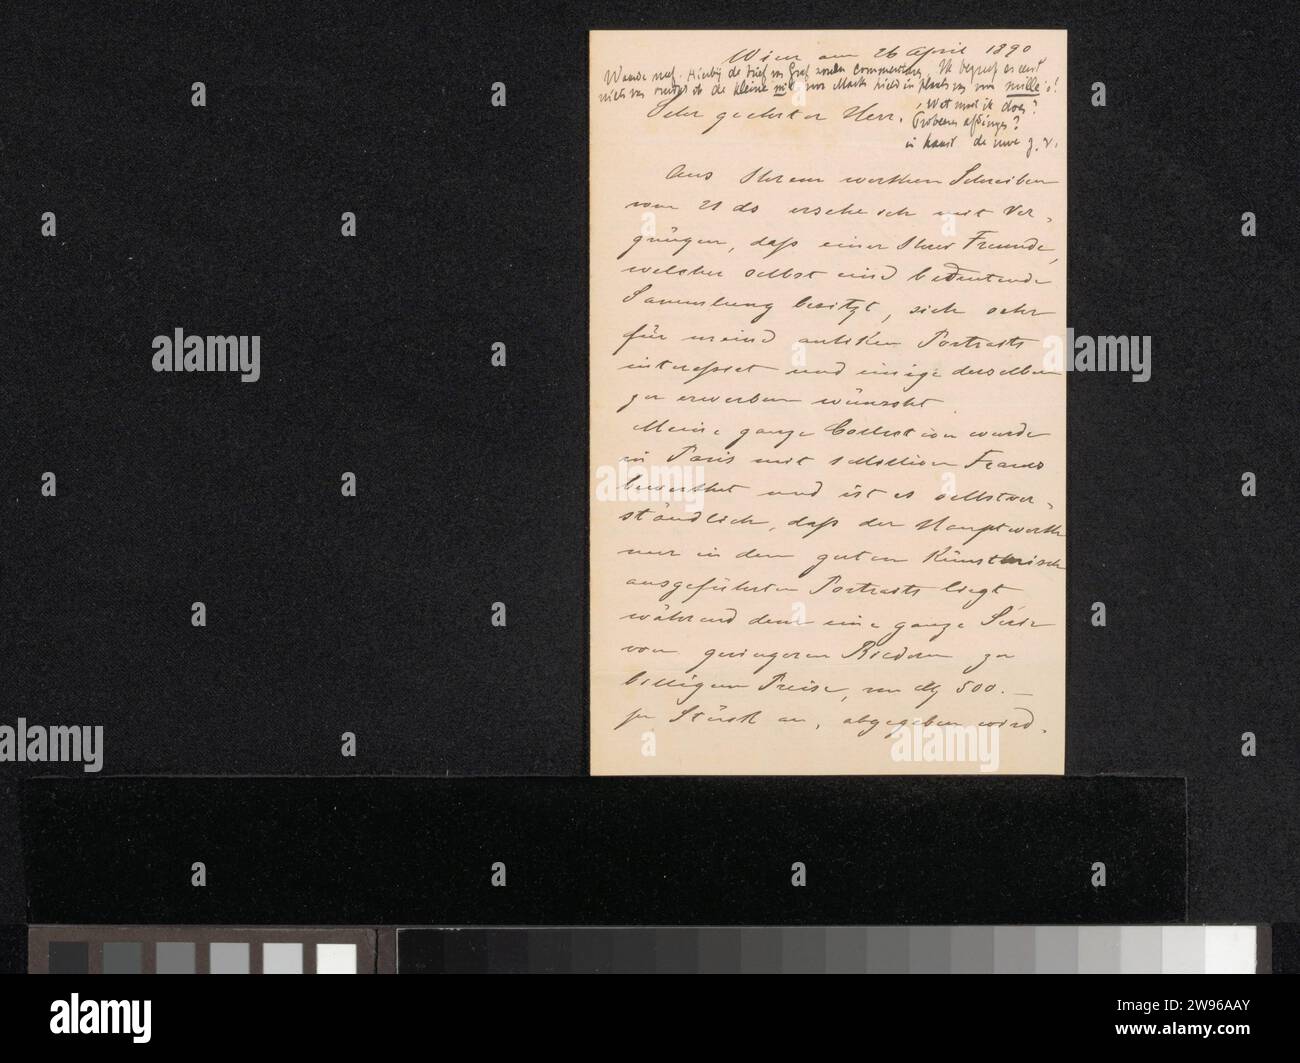 Wien am 26 April 1890
Waarde neef. Hierbij de brief van Graf zonder commentaar. Ik begreep er eerst
niets van omdat ik de kleine mil voor Mark hield in plaats van voor mille s!
Wat moet ik doen?
Probeeren afdingen?
in haast de uwe J. V.
Sehr geehrter Herr.
Aus Ihrem werthen Schreiben
vom 21 ds ersehe ich mit Ver-
gnügen, daß einer Ihrer Freunde,
welcher selbst eine bedeutende
Sammlung besitzt, sich sehr
für meine antiken Portraits
interessiert und einige derselben
zu erwerben wünscht.
Meine ganze Collection wurde
in Paris mit 1 Million Francs
bewerthet und ist es selbstver-
ständlich, daß der Hauptwerth
nur in den guten Künstlerisch
ausgeführten Portraits liegt
während dem eine ganze Serie
von geringeren Bildern zu
billigem Preise, von M 500.—
per Stück an, abgegeben wird.
alamy
alamy
Image ID: 2W96AAY
www.alamy.com